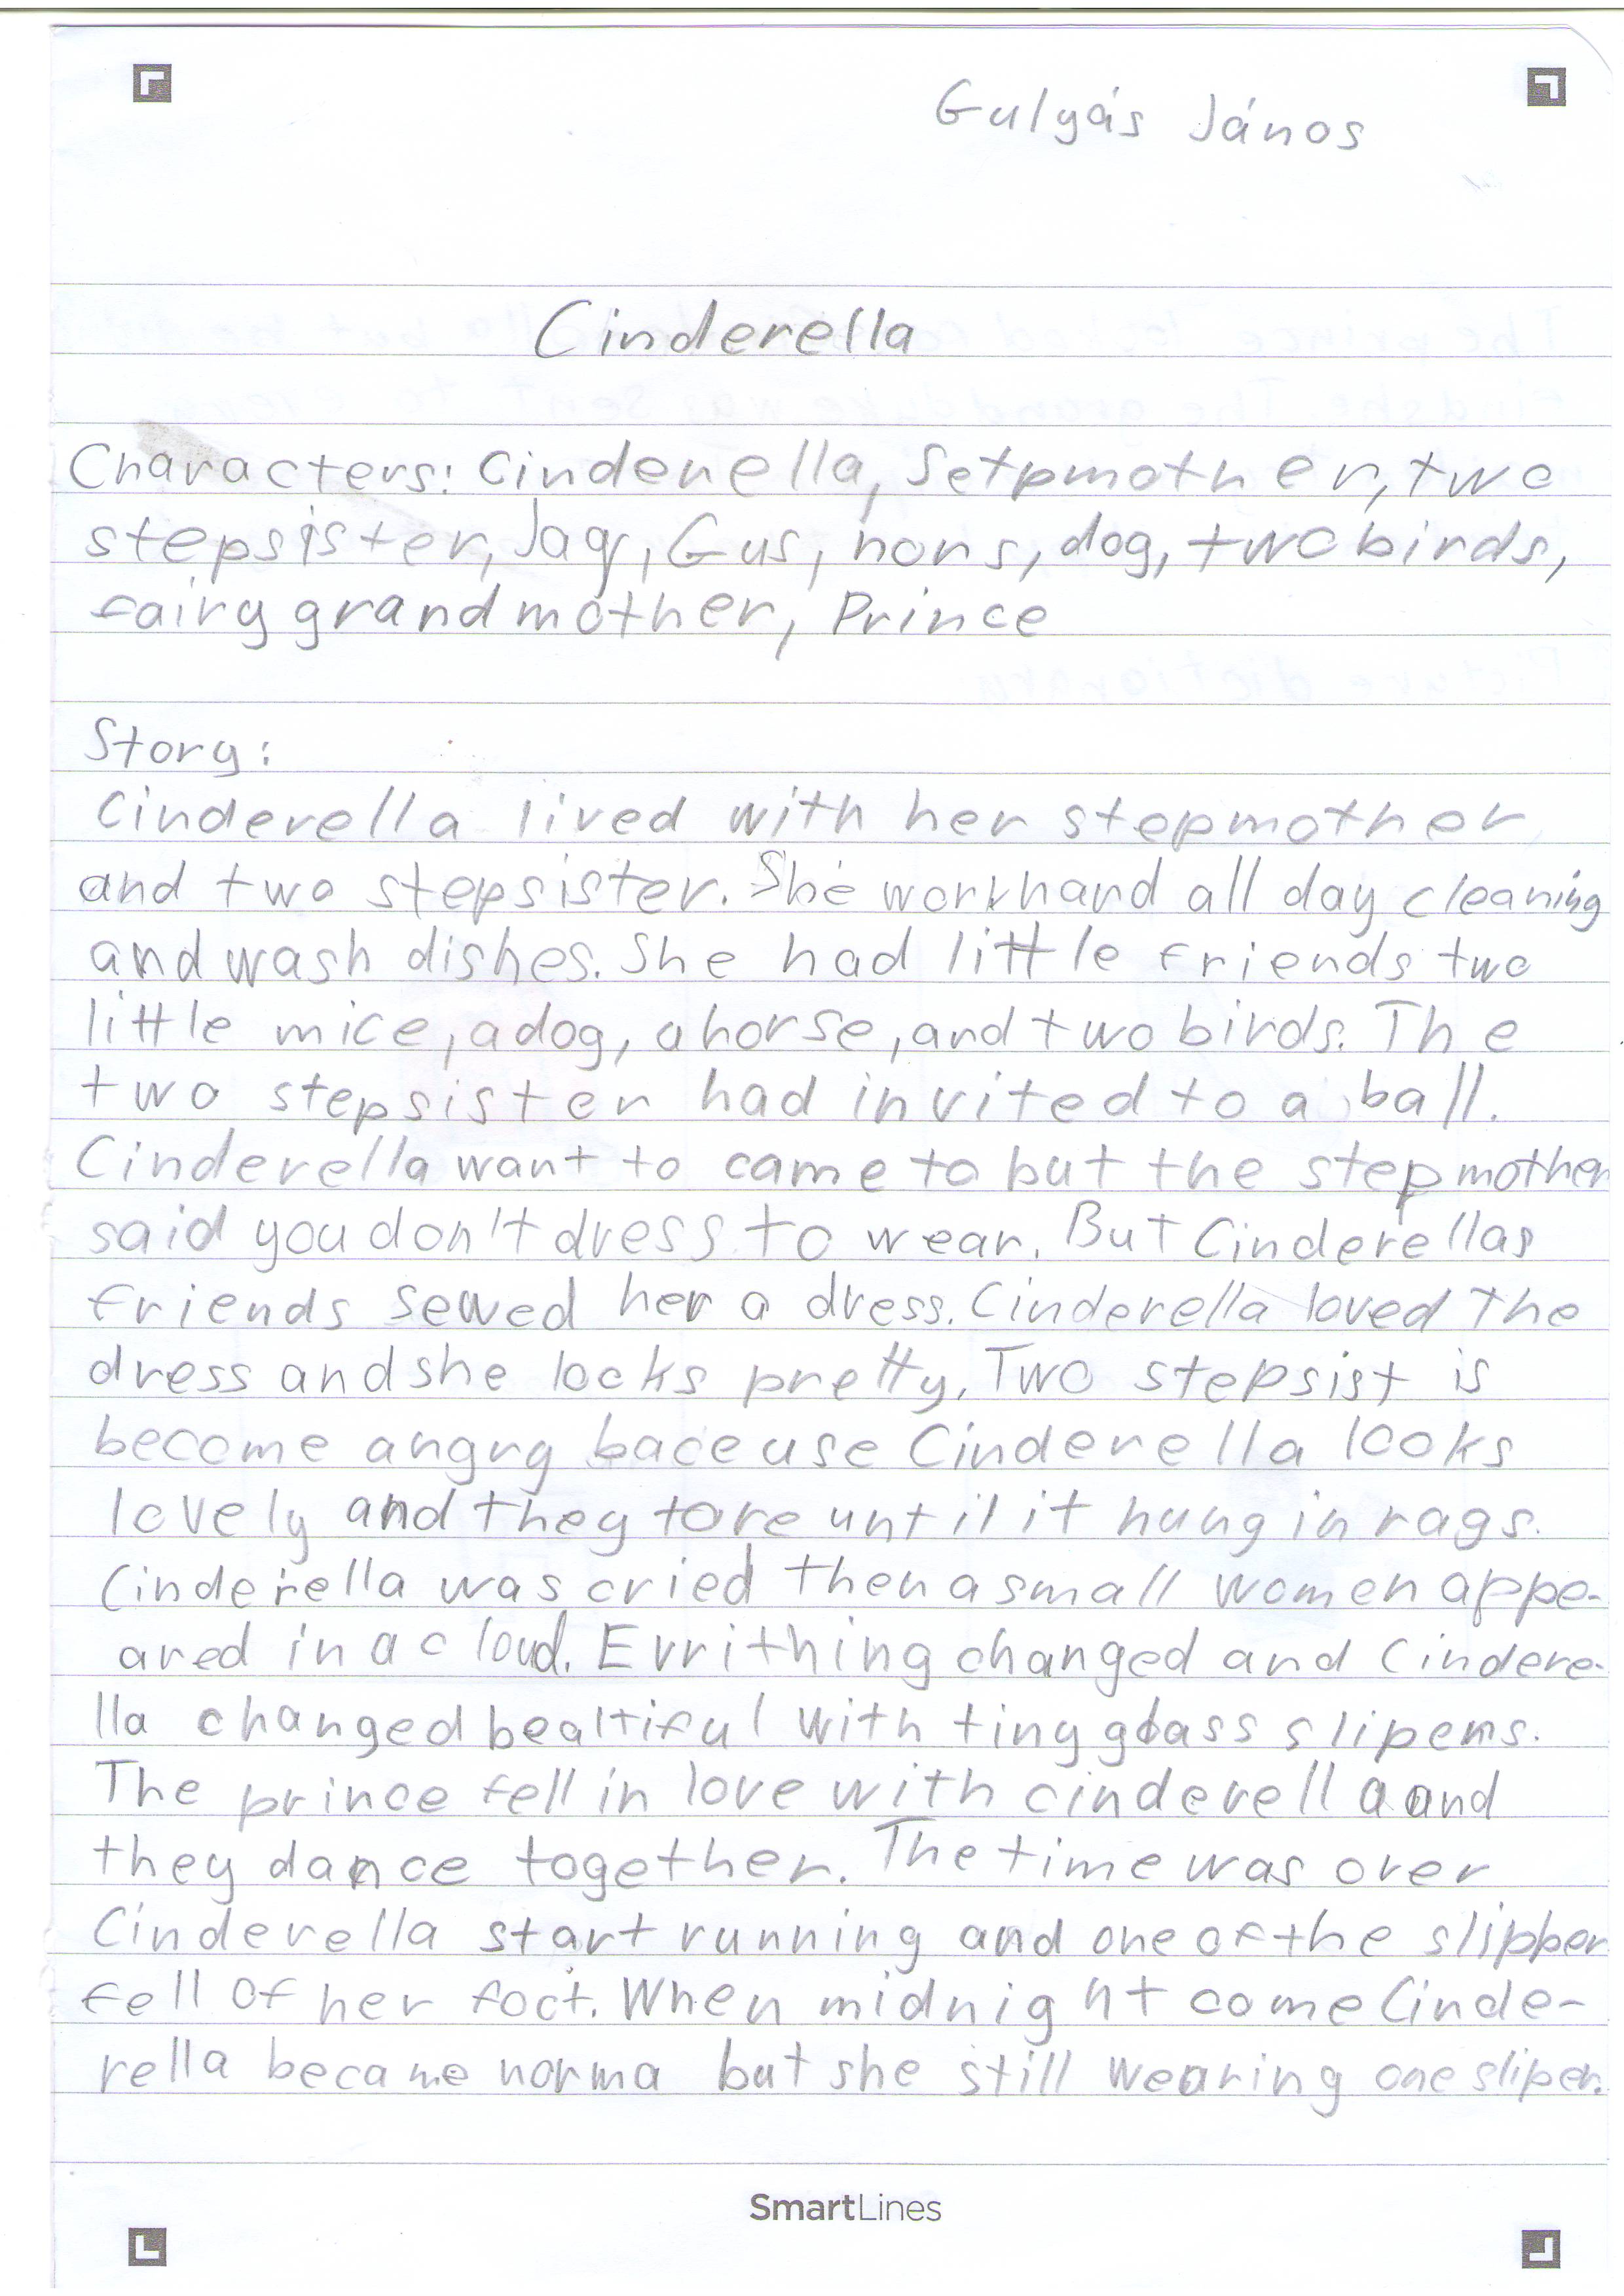 Gulyás János
Cinderella
Characters: Cinderella, Setpmother, two
stepsister, Jaq, Gus, hors, dog, two birds,
fairy grandmother, Prince
Story:
Cinderella lived with her stepmother
and two stepsister. She work hard all day cleaning
and wash dishes. She had little friends two
little mice, a dog, a horse, and two birds. The
two stepsister had invited to a ball.
Cinderella want to came to but the stepmother
said you don't dress to wear. But Cinderellas
friends sewed her a dress. Cinderella loved the
dress and she looks pretty. Two stepsist is
become angry baceuse Cinderella looks
lovely and they tore until it hung in rags.
Cinderella was cried then a small women appe-
ared in a cloud. Evrithing changed and Cindere-
lla changed bealtiful with tiny glass slipers.
The prince fell in love with cinderella and
they dance together. The time was over
Cinderella start running and one of the slipper
fell of her foot. When midnight come Cinde-
rella became norma but she still wearing one sliper.
SmartLines